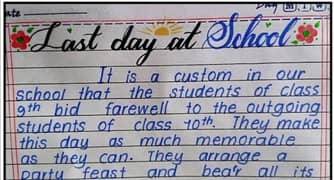 ate
Day M T W
Last day at School
It is a custom in our
school that the students of class
9th bid farewell to the outgoing
students of class 10th. They make
this day as much memorable
as they can. They arrange a
party feast and bear all its